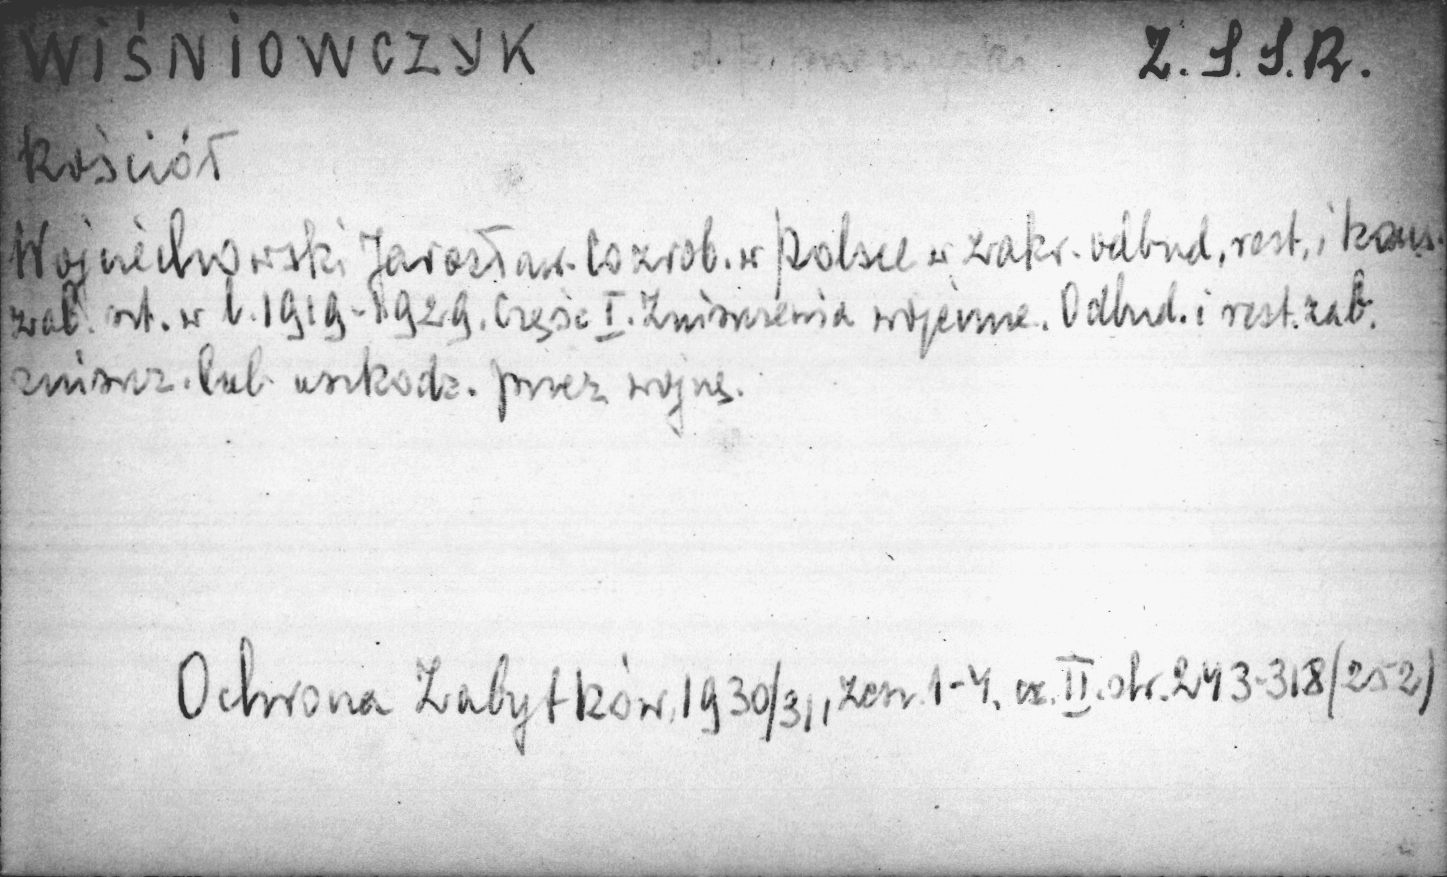 WIŚNIOWCZYK Z.S.S.R.
Kościół
Wojciechowski Jarosław. Co zrob. w Polsce w zakr. odbud, rest, i kons.
zab. szt. w l. 1919-1929. Część I. Zniszczenia wojenne. Odbud. i rest. zab.
zniszcz. lub uszkodz. przez wojnę.
Ochrona Zabytków, 1930/31, zesz. 1-4. cz. II. str. 243-318 (252)